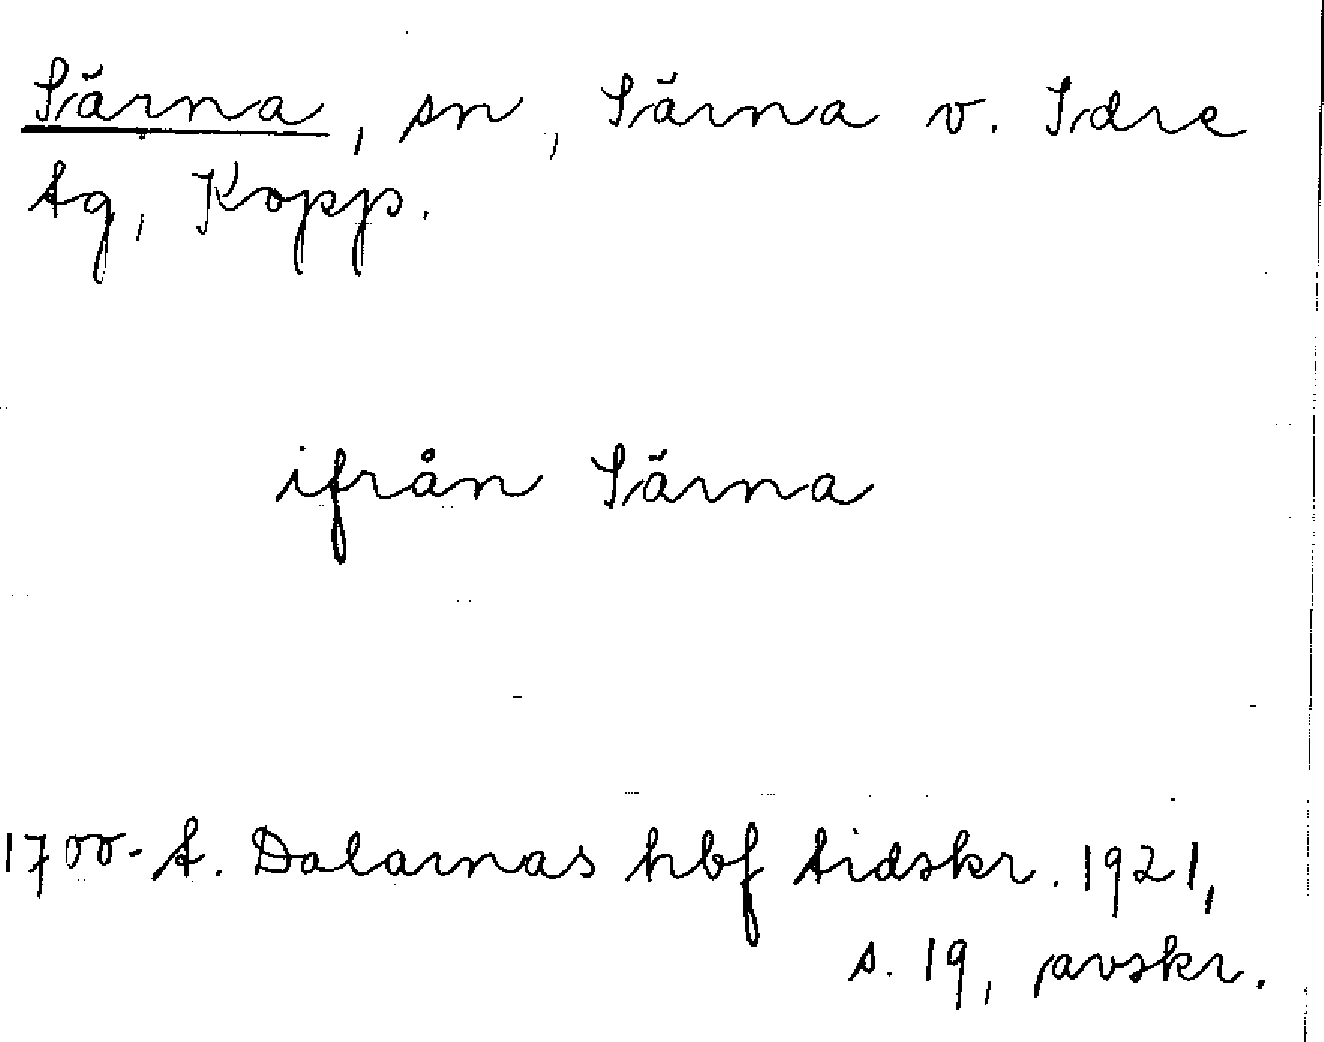 Särna, sn, Särna o. Idre
tg, Kopp.
ifrån Särna
1700-t. Dalarnas hbf tidskr. 1921,
s. 19, avskr.